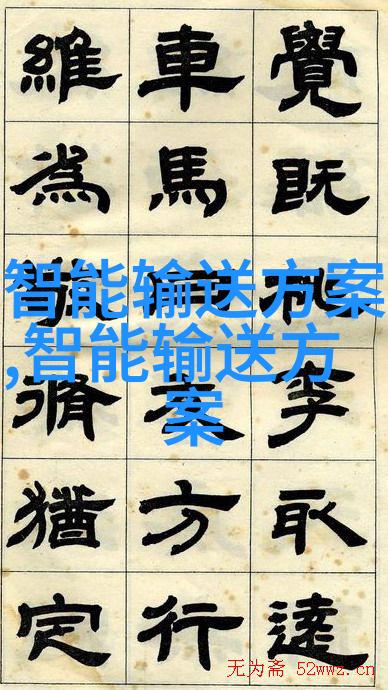 覺既李取達
車馬方行
維為脩猶定
智能输送方案
,智能输送方
案
无为斋 52wwz.cn